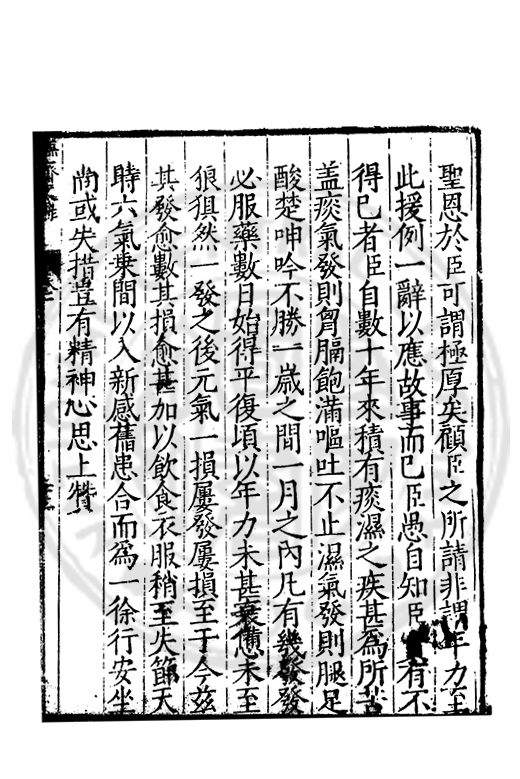 聖恩於臣可謂極厚矣顧臣之所請非謂年力至
此援例一辭以應故事而已臣愚自知臣有不
得已者臣自數十年來積有痰濕之疾甚為所苦
盖痰氣發則胷膈飽滿嘔吐不止濕氣發則腿足
酸楚呻吟不勝一歲之間一月之內凡有幾發發
必服藥數日始得平復頃以年力未甚衰憊未至
狼狽然一發之後元氣一損屢發屢損至于今玆
其發愈數其損愈甚加以飲食衣服稍至失節天
時六氣乗間以入新感舊患合而為一徐行安坐
尚或失措豈有精神心思上贊